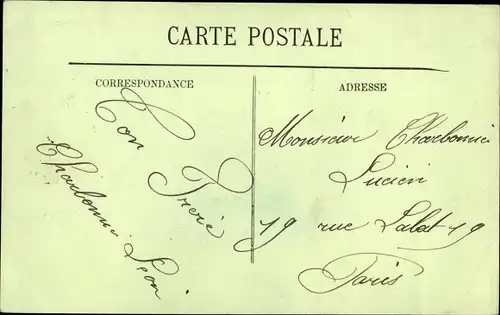 CARTE POSTALE
CORRESPONDANCE
Ton
Frère
Charbonni Léon
ADRESSE
Monsieur Charbonni
Lucien
19 rue Lalat 19
Paris